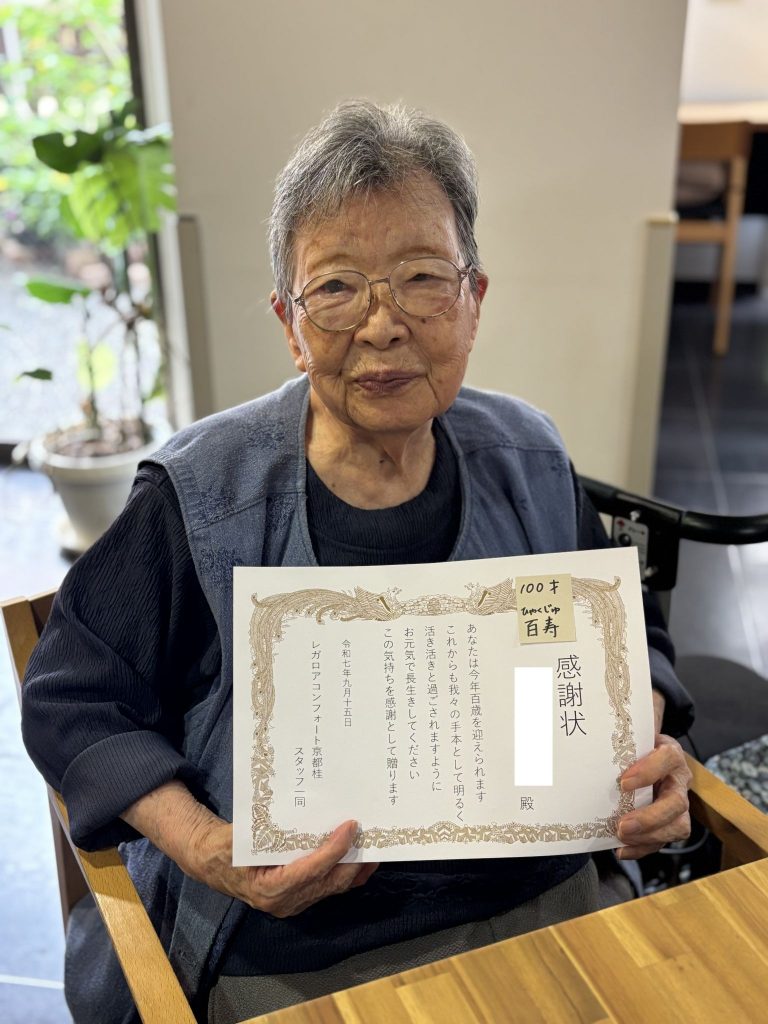 100才
ひゃくじゅ
百寿
感謝状
殿
あなたは今年百歳を迎えられます
これからも我々の手本として明るく
活き活きと過ごされますように
お元気で長生きしてください
この気持ちを感謝として贈ります
令和七年九月十五日
レガロアコンフォート京都桂
スタッフ一同